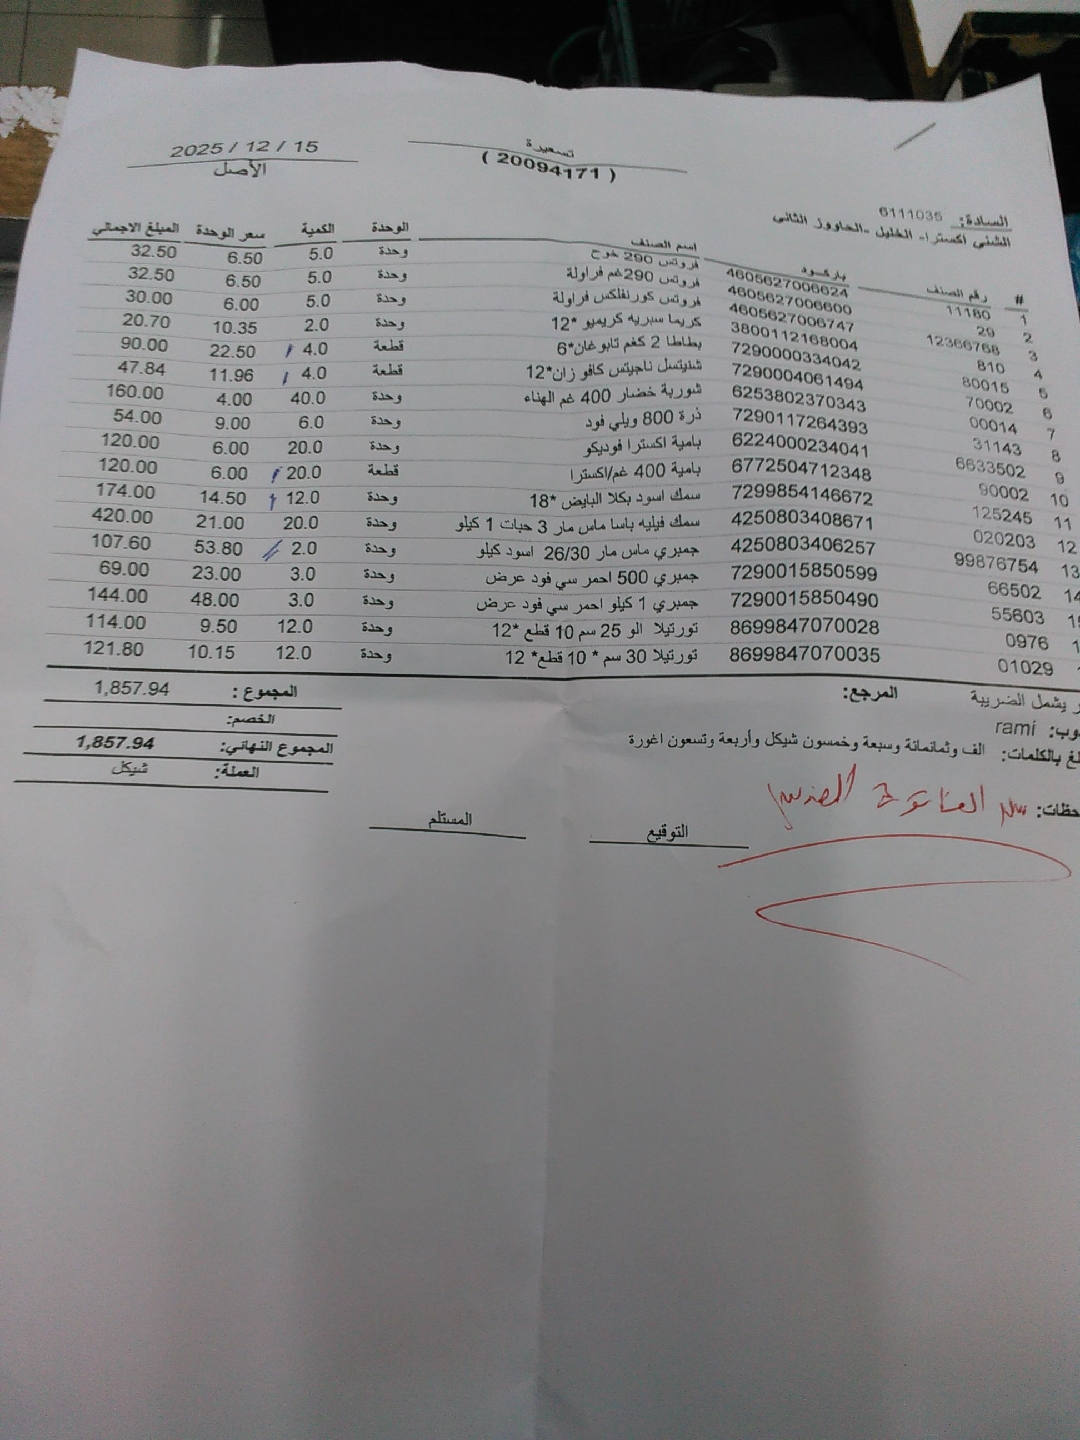 تسعيرة
( 20094171 )
2025 / 12 / 15
الأصل
السادة: 6111035
الشني اكسترا- الخليل -الحاووز الثاني
# رقم الصنف باركود اسم الصنف الوحدة الكمية سعر الوحدة المبلغ الاجمالي
1 11180 4605627006624 فروتس 290 خوخ وحدة 5.0 6.50 32.50
2 29 4605627006600 فروتس 290غم فراولة وحدة 5.0 6.50 32.50
3 12366768 4605627006747 فروتس كورنفلكس فراولة وحدة 5.0 6.00 30.00
4 810 3800112168004 كريما سبريه كريميو *12 وحدة 2.0 10.35 20.70
5 80015 7290000334042 بطاطا 2 كغم تابوغان*6 قطعة 4.0 22.50 90.00
6 70002 7290004061494 شنيتسل ناجيتس كافو زان*12 قطعة 4.0 11.96 47.84
7 00014 6253802370343 شوربة خضار 400 غم الهناء وحدة 40.0 4.00 160.00
8 31143 7290117264393 ذرة 800 ويلي فود وحدة 6.0 9.00 54.00
9 6633502 6224000234041 بامية اكسترا فوديكو وحدة 20.0 6.00 120.00
10 90002 6772504712348 بامية 400 غم/اكسترا قطعة 20.0 6.00 120.00
11 125245 7299854146672 سمك اسود بكلا البايض *18 وحدة 12.0 14.50 174.00
12 020203 4250803408671 سمك فيليه باسا ماس مار 3 حبات 1 كيلو وحدة 20.0 21.00 420.00
13 99876754 4250803406257 جمبري ماس مار 26/30 اسود كيلو وحدة 2.0 53.80 107.60
66502 7290015850599 جمبري 500 احمر سي فود عرض وحدة 3.0 23.00 69.00
55603 7290015850490 جمبري 1 كيلو احمر سي فود عرض وحدة 3.0 48.00 144.00
0976 8699847070028 تورتيلا الو 25 سم 10 قطع *12 وحدة 12.0 9.50 114.00
01029 8699847070035 تورتيلا 30 سم * 10 قطع* 12 وحدة 12.0 10.15 121.80
يشمل الضريبة المرجع: المجموع : 1,857.94
rami
الخصم:
بالكلمات: الف وثمانمائة وسبعة وخمسون شيكل وأربعة وتسعون اغورة المجموع النهائي: 1,857.94
العملة: شيكل
التوقيع المستلم